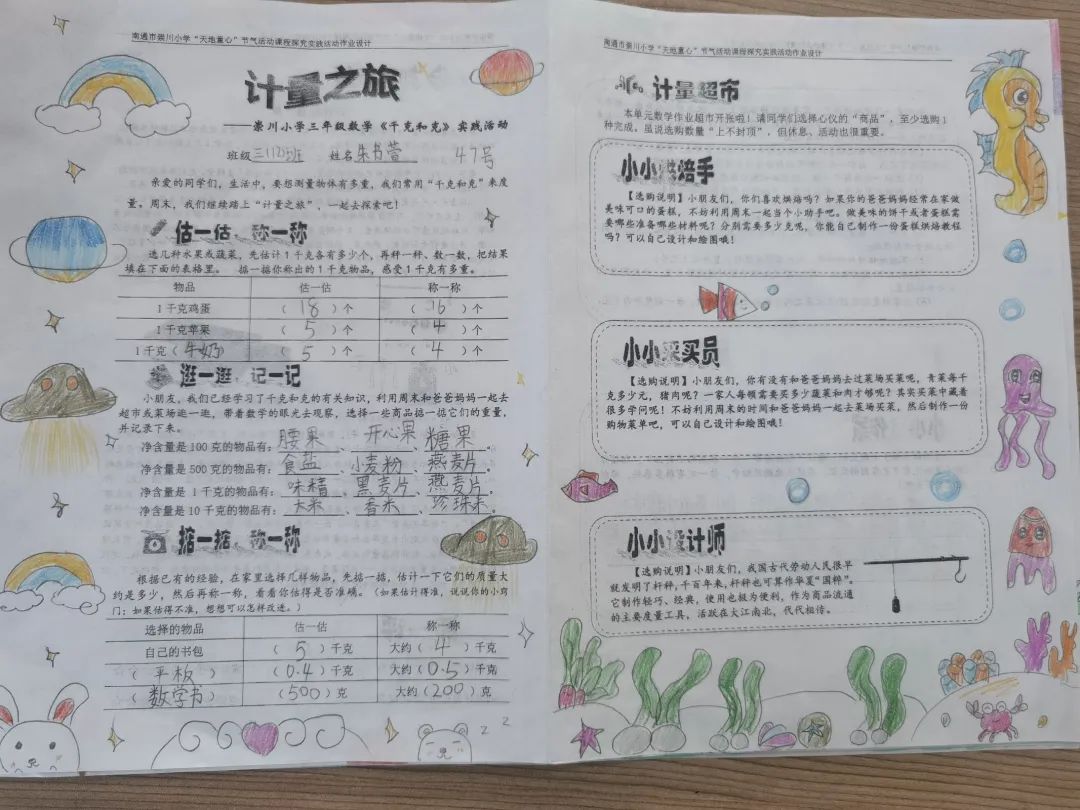 南通市崇川小学“天地童心”节气活动课程探究实践活动作业设计
计量之旅
——崇川小学三年级数学《千克和克》实践活动
班级三(12)班 姓名朱书萱 47号
亲爱的同学们，生活中，要想测量物体有多重，我们常用“千克和克”来度
量。周末，我们继续踏上“计量之旅”，一起去探索吧！
估一估，称一称
选几种水果或蔬菜，先估计1千克各有多少个，再秤一秤、数一数，把结果
填在下面的表格里。 掂一掂你称出的1千克物品，感受1千克有多重。
物品 估一估 称一称
1千克鸡蛋 （18）个 （16）个
1千克苹果 （5）个 （4）个
1千克（牛奶） （5）个 （4）个
逛一逛，记一记
小朋友，我们已经学习了千克和克的有关知识，利用周末和爸爸妈妈一起去
超市或菜场逛一逛，带着数学的眼光去观察，选择一些商品掂一掂它们的重量，
并记录下来。
净含量是100克的物品有：腰果、开心果、糖果。
净含量是500克的物品有：食盐、小麦粉、燕麦片。
净含量是1千克的物品有：味精、黑麦片、燕麦片。
净含量是10千克的物品有：大米、香米、珍珠米。
掂一掂，称一称
根据已有的经验，在家里选择几样物品，先掂一掂，估计一下它们的质量大
约是多少，然后再称一称，看看你估得是否准确。（如果估计得准，说说你的小窍
门；如果估得不准，想想可以怎样改进。）
选择的物品 估一估 称一称
自己的书包 （5）千克 大约（4）千克
（平板） （0.4）千克 大约（0.5）千克
（数学书） （500）克 大约（200）克
z z
南通市崇川小学“天地童心”节气活动课程探究实践活动作业设计
计量超市
本单元数学作业超市开张啦！请同学们选择心仪的“商品”，至少选购1
种完成。虽说选购数量“上不封顶”，但休息、活动也很重要。
小小烘焙手
【选购说明】小朋友们，你们喜欢烘焙吗？如果你的爸爸妈妈经常在家做
美味可口的蛋糕，不妨利用周末一起当个小助手吧。做美味的饼干或者蛋糕需
要哪些准备哪些材料呢？分别需要多少克呢，你能自己制作一份蛋糕烘焙教程
吗？可以自己设计和绘图哦！
小小采买员
【选购说明】小朋友们，你有没有和爸爸妈妈去过菜场买菜呢，青菜每千
克多少元，猪肉呢？一家人每顿需要买多少蔬菜和肉才够呢？其实买菜中藏着
很多学问呢！不妨利用周末的时间和爸爸妈妈一起去菜场买菜，然后制作一份
购物菜单吧，可以自己设计和绘图哦！
小小设计师
【选购说明】小朋友们，我国古代劳动人民很早
就发明了杆秤，千百年来，杆秤也可算作华夏“国粹”。
它制作轻巧、经典，使用也极为便利，作为商品流通
的主要度量工具，活跃在大江南北，代代相传。